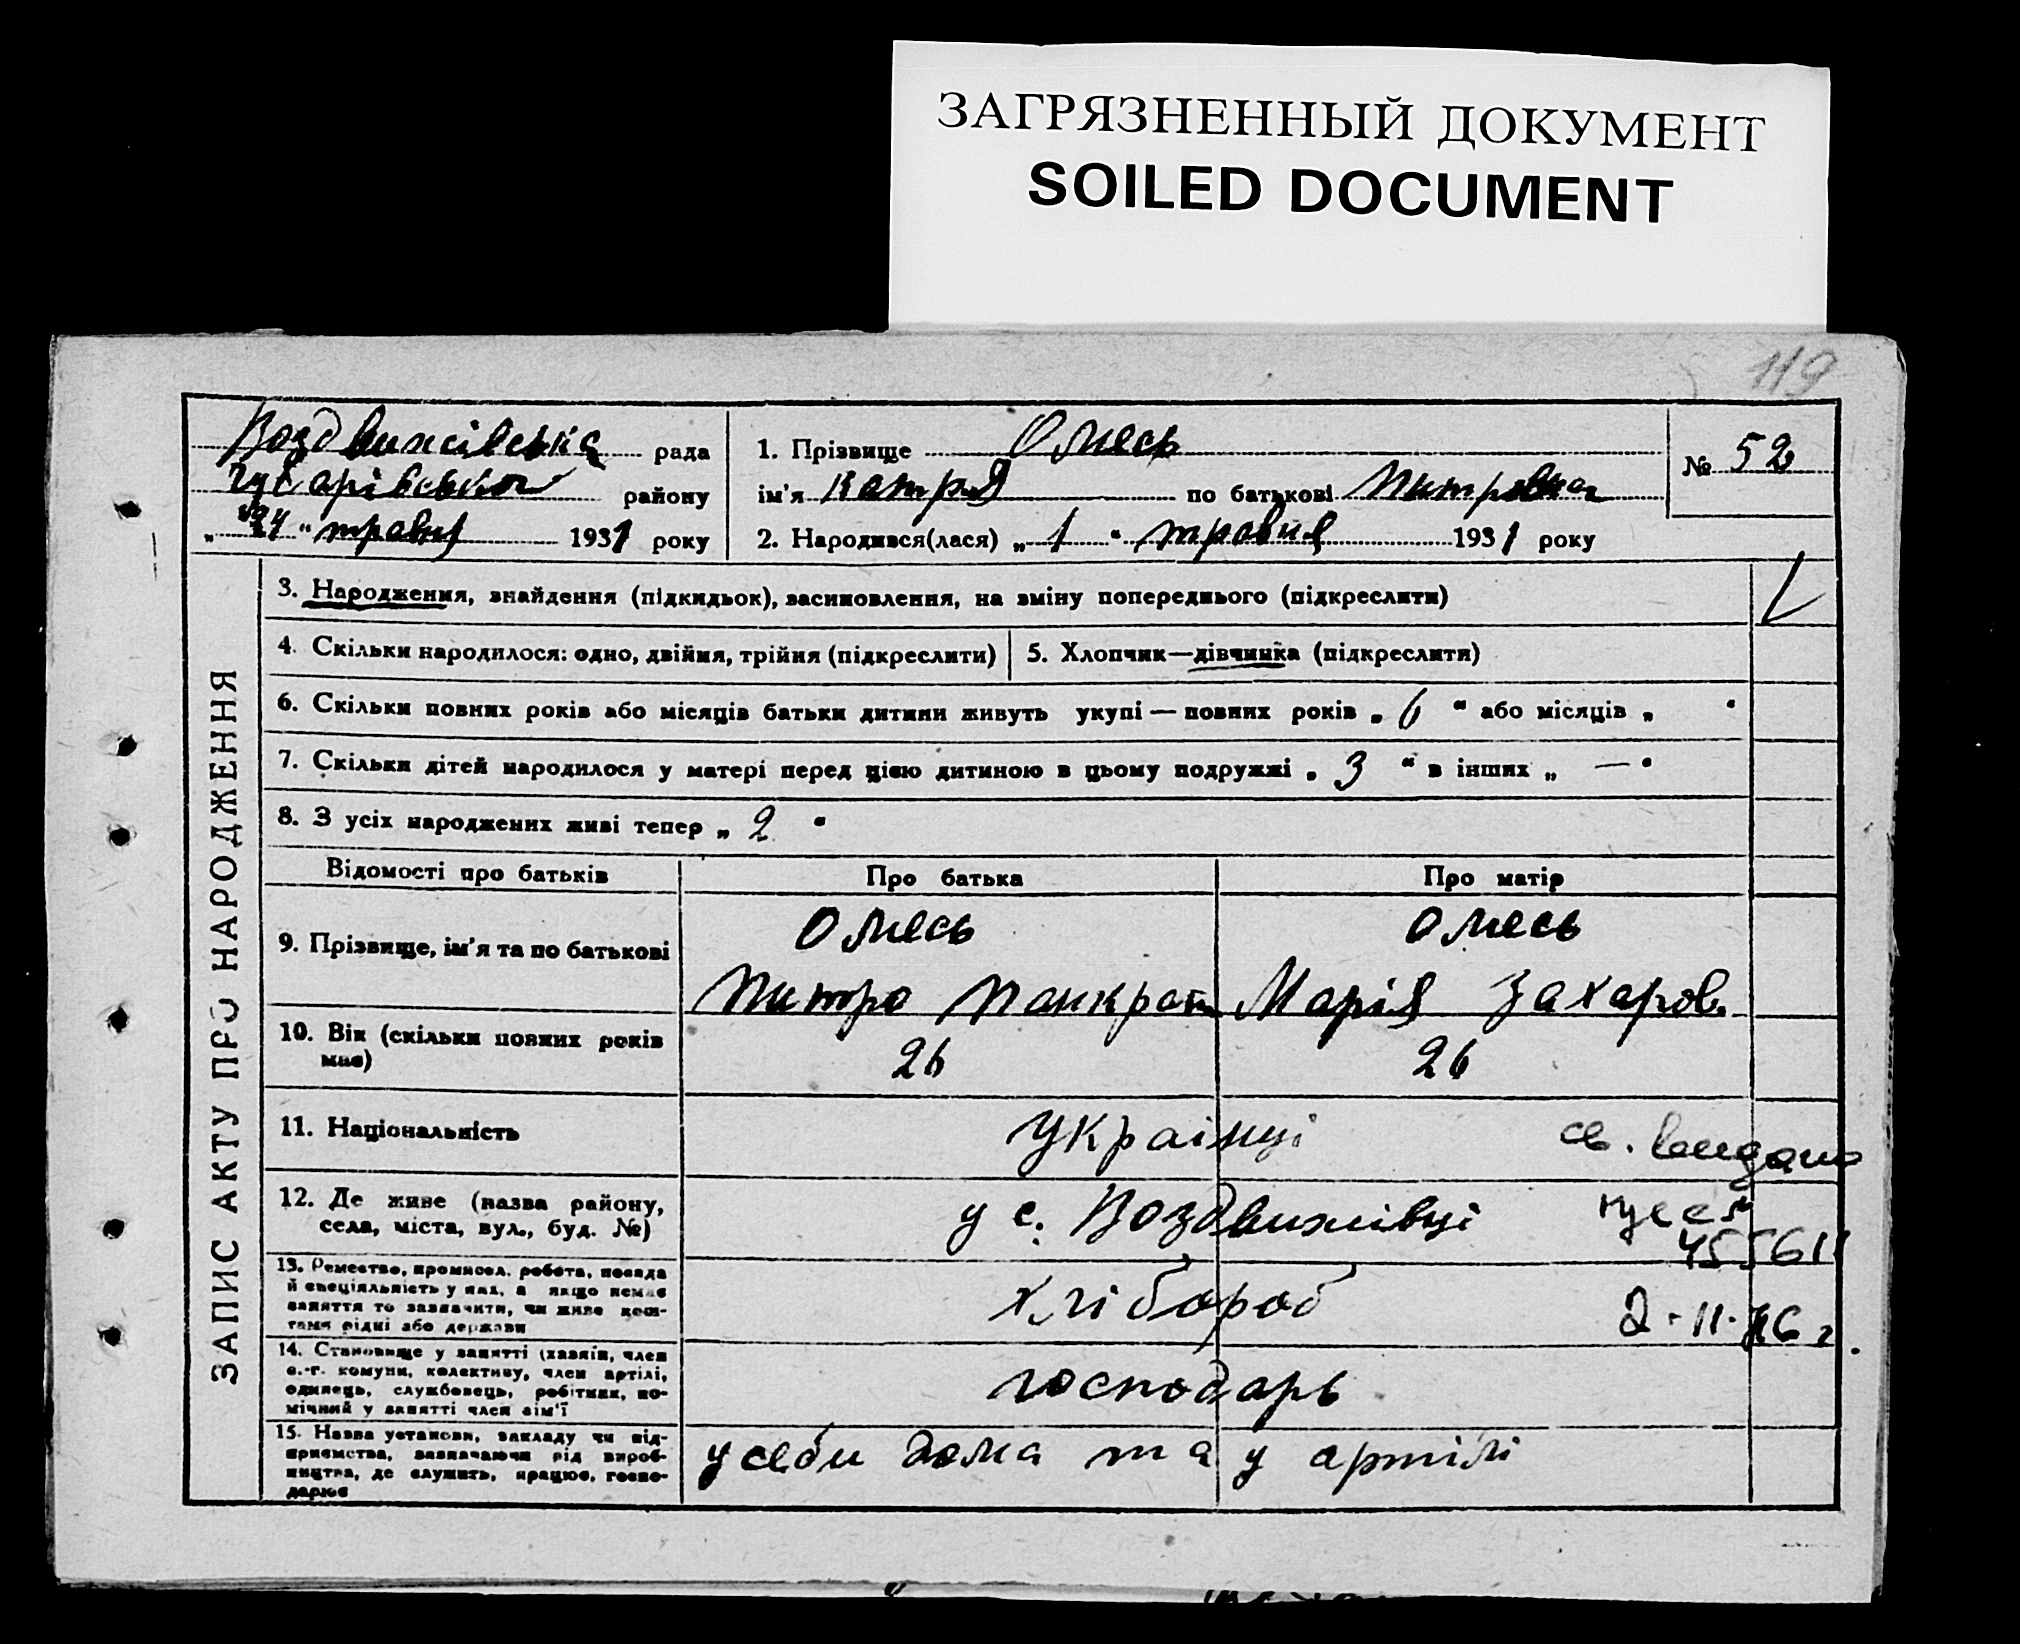 ЗАГРЯЗНЕННЫЙ ДОКУМЕНТ
SOILED DOCUMENT
119
Воздвижівська рада
району
„24“ травня 1931 року
1. Прізвище Омесь
ім'я Катря по батькові Митровна
2. Народився(лася) „1“ травня 1931 року
№ 52
ЗАПИС АКТУ ПРО НАРОДЖЕННЯ
3. Народження, знайдення (підкидьок), засиновлення, на зміну попереднього (підкреслити)
4. Скільки народилося: одно, двійня, трійня (підкреслити)
5. Хлопчик—дівчинка (підкреслити)
6. Скільки повних років або місяців батьки дитини живуть укупі — повних років „6“ або місяців „ “
7. Скільки дітей народилося у матері перед цією дитиною в цьому подружжі „3“ в інших „—“
8. З усіх народжених живі тепер „2“
Відомості про батьків
Про батька
Про матір
9. Прізвище, ім'я та по батькові
Омесь
Митро Панкрат
Омесь
Марія Захаров.
10. Вік (скільки повних років
має)
26
26
11. Національність
Українці
св.
12. Де живе (назва району,
села, міста, вул., буд. №)
у с. Воздвижівці
455611
13. Ремество, промисел, робота, посада
й спеціяльність у них, а якщо немає
заняття то зазначити, чи живе кош-
тами рідні або держави
хлібороб
2.11.76 г.
14. Становище у занятті (хазяїн, член
с.-г. комуни, колективу, член артілі,
одинець, службовець, робітник, по-
мічний у занятті член сім'ї
господарь
15. Назва установи, закладу чи під-
приємства, зазначаючи рід вироб-
ництва, де служить, працює, госпо-
дарює
у себи дома та у артілі